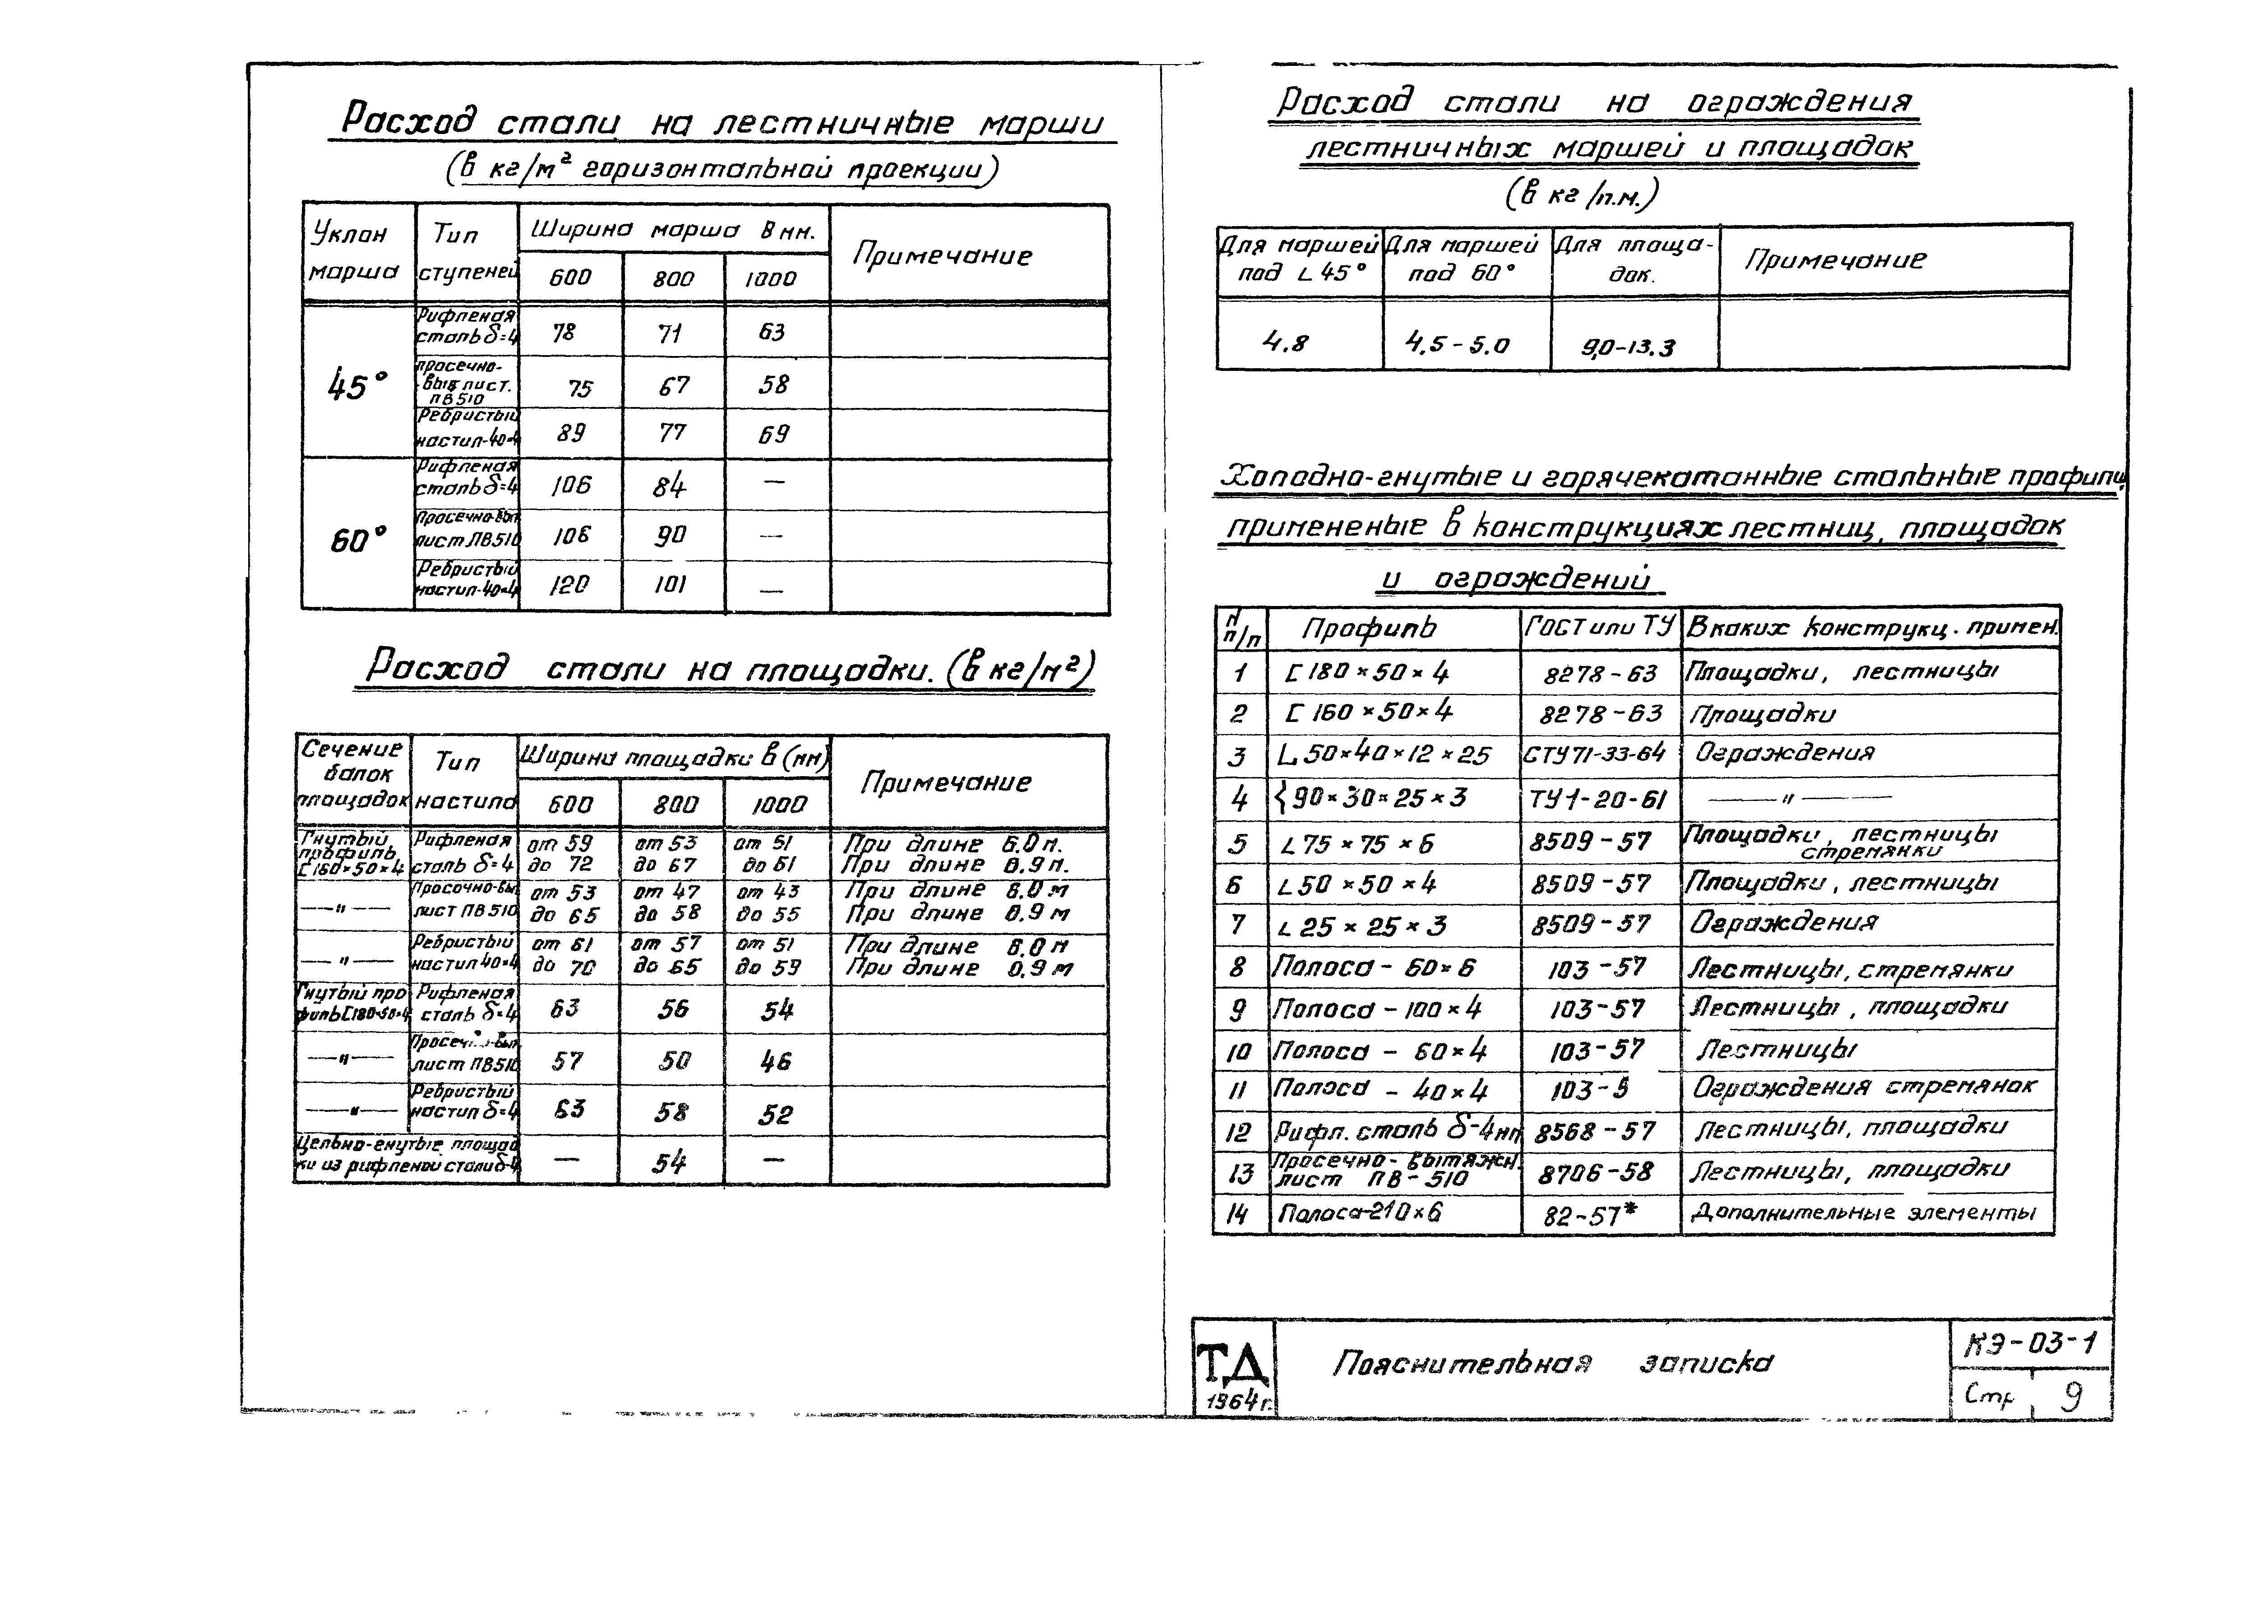 Расход стали на лестничные марши
(в кг/м² горизонтальной проекции)
Уклон марша Тип ступеней Ширина марша В мм. Примечание
600 800 1000
45° Рифленая сталь δ=4 78 71 63
просечно-выт лист. ПВ510 75 67 58
Ребристый настил-40×4 89 77 69
60° Рифленая сталь δ=4 106 84 —
Просечно-выт лист ПВ510 106 90 —
Ребристый настил-40×4 120 101 —
Расход стали на площадки. (в кг/м²)
Сечение балок площадок Тип настила Ширина площадки в (мм) Примечание
600 800 1000
Гнутый профиль [160×50×4 Рифленая сталь δ=4 от 59 от 53 от 51 При длине 6.0м.
до 72 до 67 до 61 При длине 0.9м.
—"— Просечно-вы. лист ПВ510 от 53 от 47 от 43 При длине 6.0м
до 65 до 58 до 55 При длине 0.9м
—"— Ребристый настил 40×4 от 61 от 57 от 51 При длине 6.0м
до 70 до 65 до 59 При длине 0.9м
Гнутый профиль [180×50×4 Рифленая сталь δ=4 63 56 54
—"— Просечно-вып лист ПВ510 57 50 46
—"— Ребристый настил δ=4 63 58 52
Цельно-гнутые площадки из рифленой стали δ-4 — 54 —
Расход стали на ограждения
лестничных маршей и площадок
(в кг/п.м.)
Для маршей под ∟45° Для маршей под 60° Для площадок. Примечание
4.8 4.5-5.0 9,0-13.3
Холодно-гнутые и горячекатанные стальные профили,
примененые в конструкциях лестниц, площадок
и ограждений
N п/п Профиль ГОСТ или ТУ В каких конструкц. примен.
1 [180×50×4 8278-63 Площадки, лестницы
2 [160×50×4 8278-63 Площадки
3 ∟50×40×12×25 СТУ71-33-64 Ограждения
4 {90×30×25×3 ТУ1-20-61 —"—
5 ∟75×75×6 8509-57 Площадки, лестницы стремянки
6 ∟50×50×4 8509-57 Площадки, лестницы
7 ∟25×25×3 8509-57 Ограждения
8 Полоса-60×6 103-57 Лестницы, стремянки
9 Полоса-100×4 103-57 Лестницы, площадки
10 Полоса-60×4 103-57 Лестницы
11 Полоса-40×4 103-5 Ограждения стремянок
12 Рифл. сталь δ-4мм 8568-57 Лестницы, площадки
13 Просечно-вытяжн. лист ПВ-510 8706-58 Лестницы, площадки
14 Полоса-210×6 82-57* Дополнительные элементы
ТД
1964г.
Пояснительная записка
КЭ-03-1
Стр 9